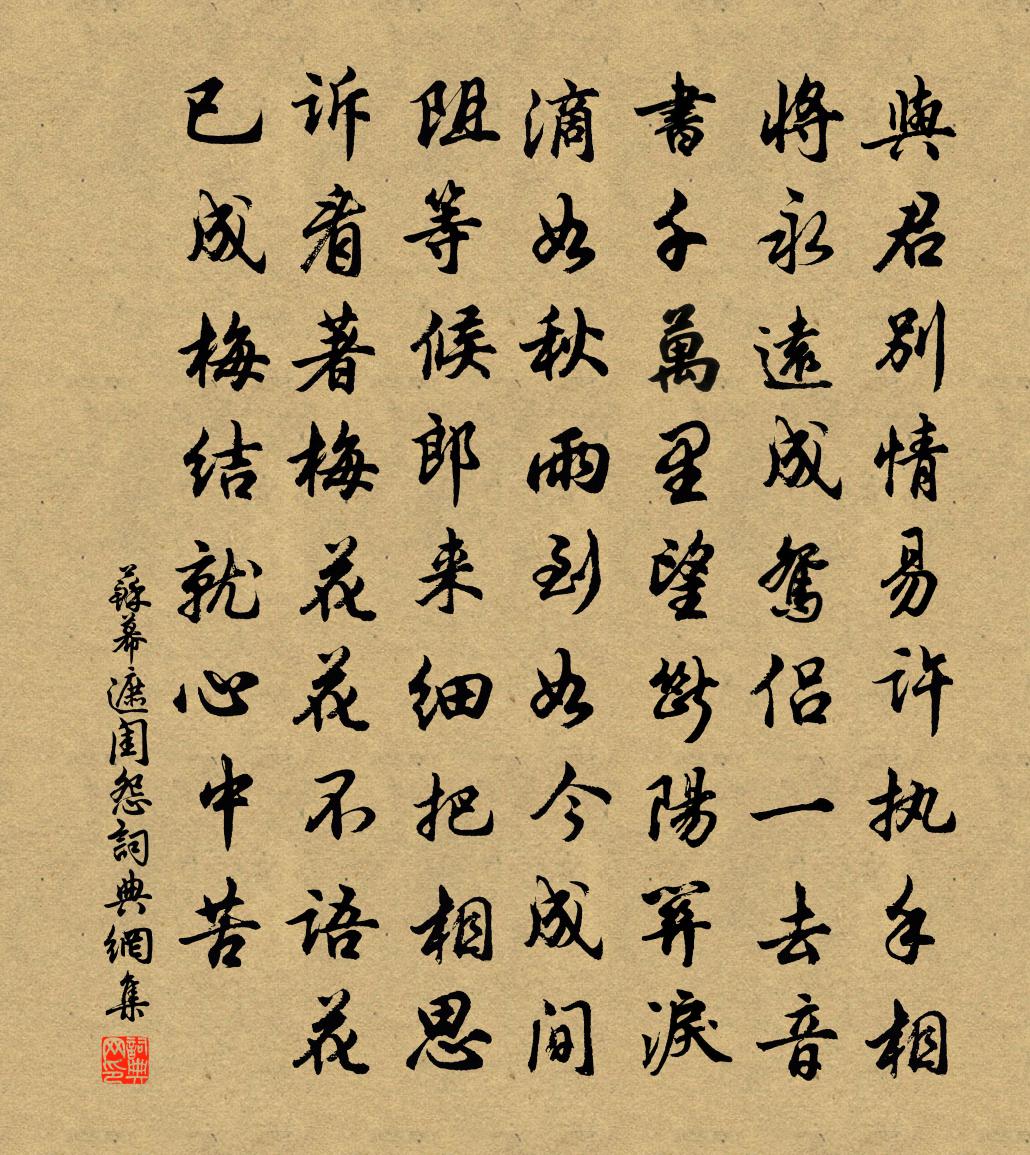 與君別情易許执手相
將永遠成鴛侶一去音
書千萬里望斷陽關淚
滴如秋雨到如今成間
阻等候郎来細把相思
訴看著梅花花不語花
已成梅結就心中苦
蘇幕遮閨怨詞典網集
詞典网印